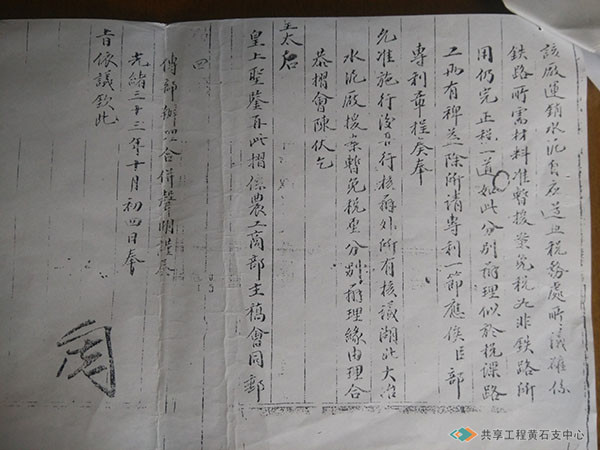 該廠運銷水泥自應遵照稅務處所議確係
鐵路所需材料准暫援案免稅尤非鐵路所
用仍完正稅一道如此分別辦理似於稅課路
工兩有裨益除所請專利一節應俟臣部
專利章程奏奉
允准施行後再行核辦外所有核議湖北大冶
水泥廠援案暫免稅釐分別辦理緣由理合
恭摺會陳伏乞
皇太后
皇上聖鑒再此摺係農工商部主稿會同郵
傳部辦理合併聲明謹奏
光緒三十三年十月初四日奉
旨依議欽此
四
共享工程黄石支中心